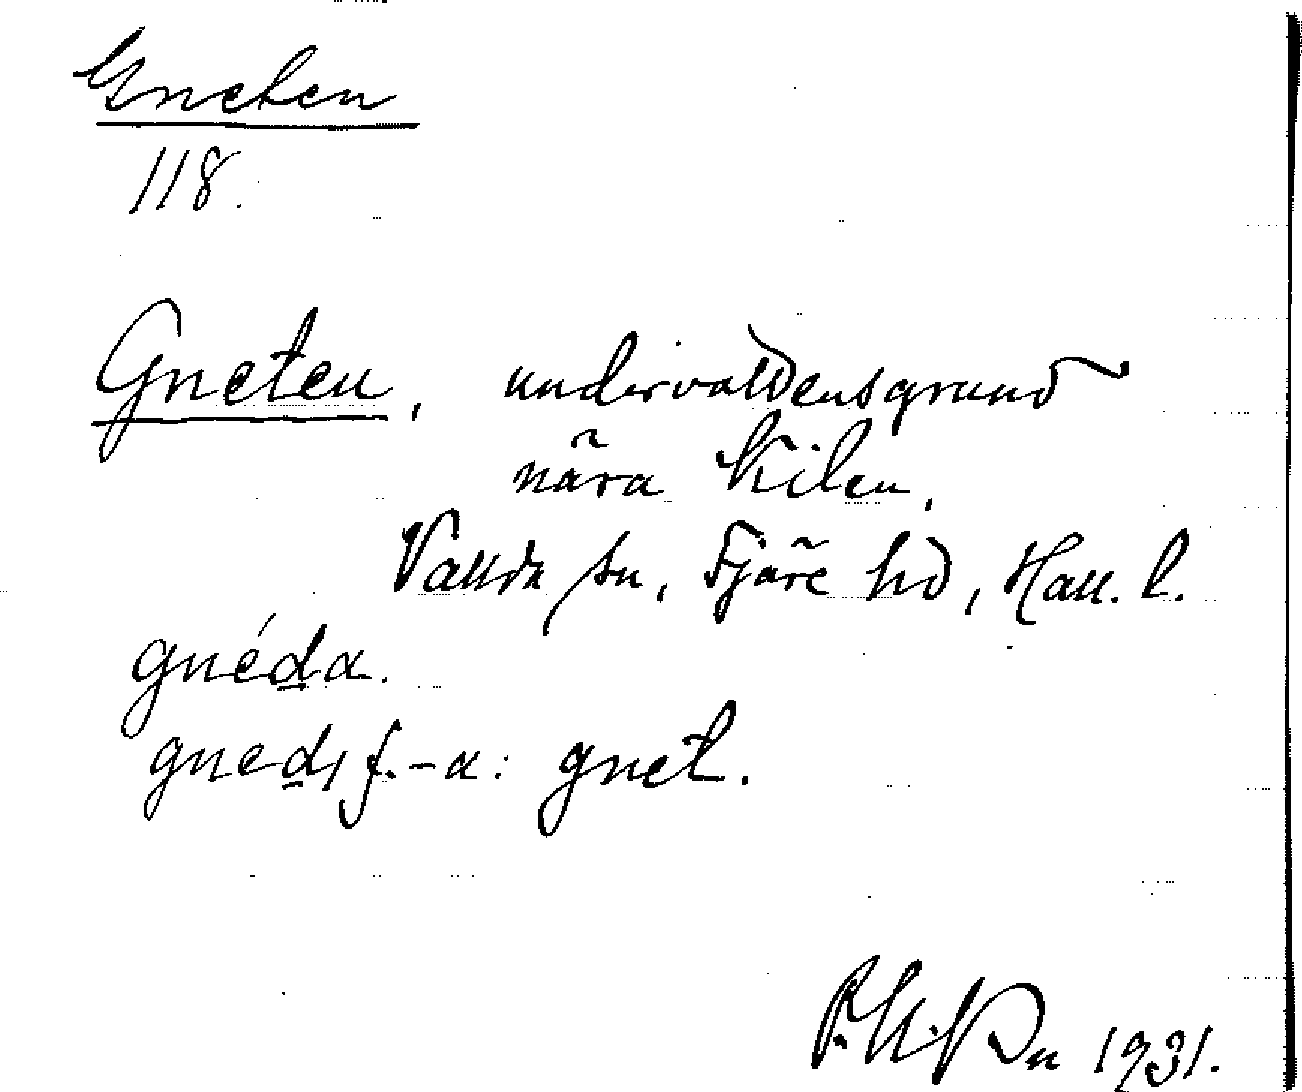 Gneten
118.
Gneten, undervattensgrund
nära Kilen,
Vallda sn, Fjäre hd, Hall. l.
gnéda.
gneds f.-a: gnet.
1931.